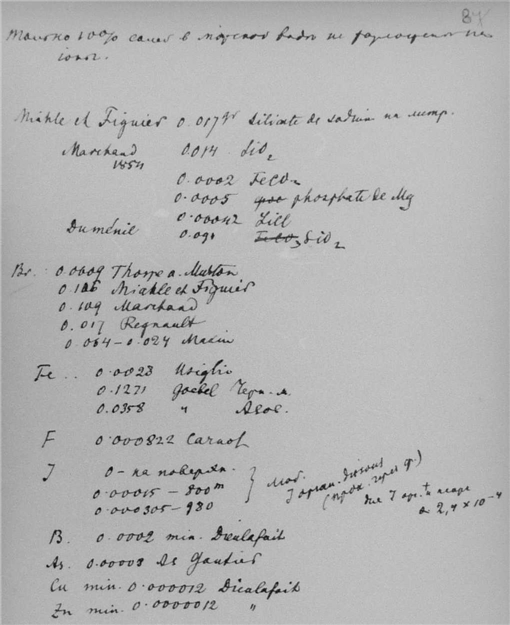 87
Только 10% солей в морской воде не разложены на
ионы.
Miahle et Figuier 0.017gr Silicate de sodium на литр.
Marchand 0.014 SiO2
1854
0.0002 FeCO2
0.0005 phosphate de Mg
0.00042 LiCl
Duménil 0.09 FeCO3 SiO2
Br. 0.0609 Thorpe a. Morton
0.106 Miahle et Figuier
0.109 Marchand
0.017 Regnault
0.064–0.024 Macin
Fe .. 0.0023 Usiglio
0.1271 Goebel Черн. м.
0.0358 " Азов.
F 0.000822 Carnot
J 0 – на поверхн.
0.00015 – 800m
0.000305 – 980
J орган.
(через ф.)
2,4 x 10-4
B. 0.0002 min. Dieulafait
As. 0.00008 As Gautier
Cu min. 0.000012 Dieulafait
Zn min. 0.0000012 "